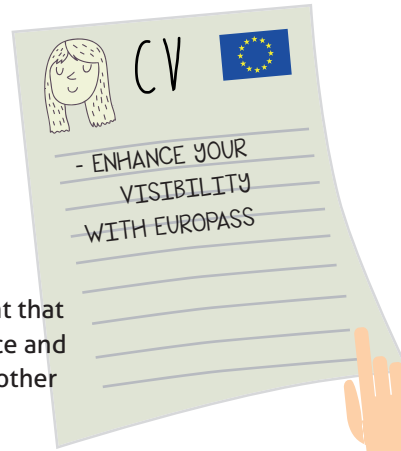 CV
- ENHANCE YOUR
VISIBILITY
WITH EUROPASS
that
and
other